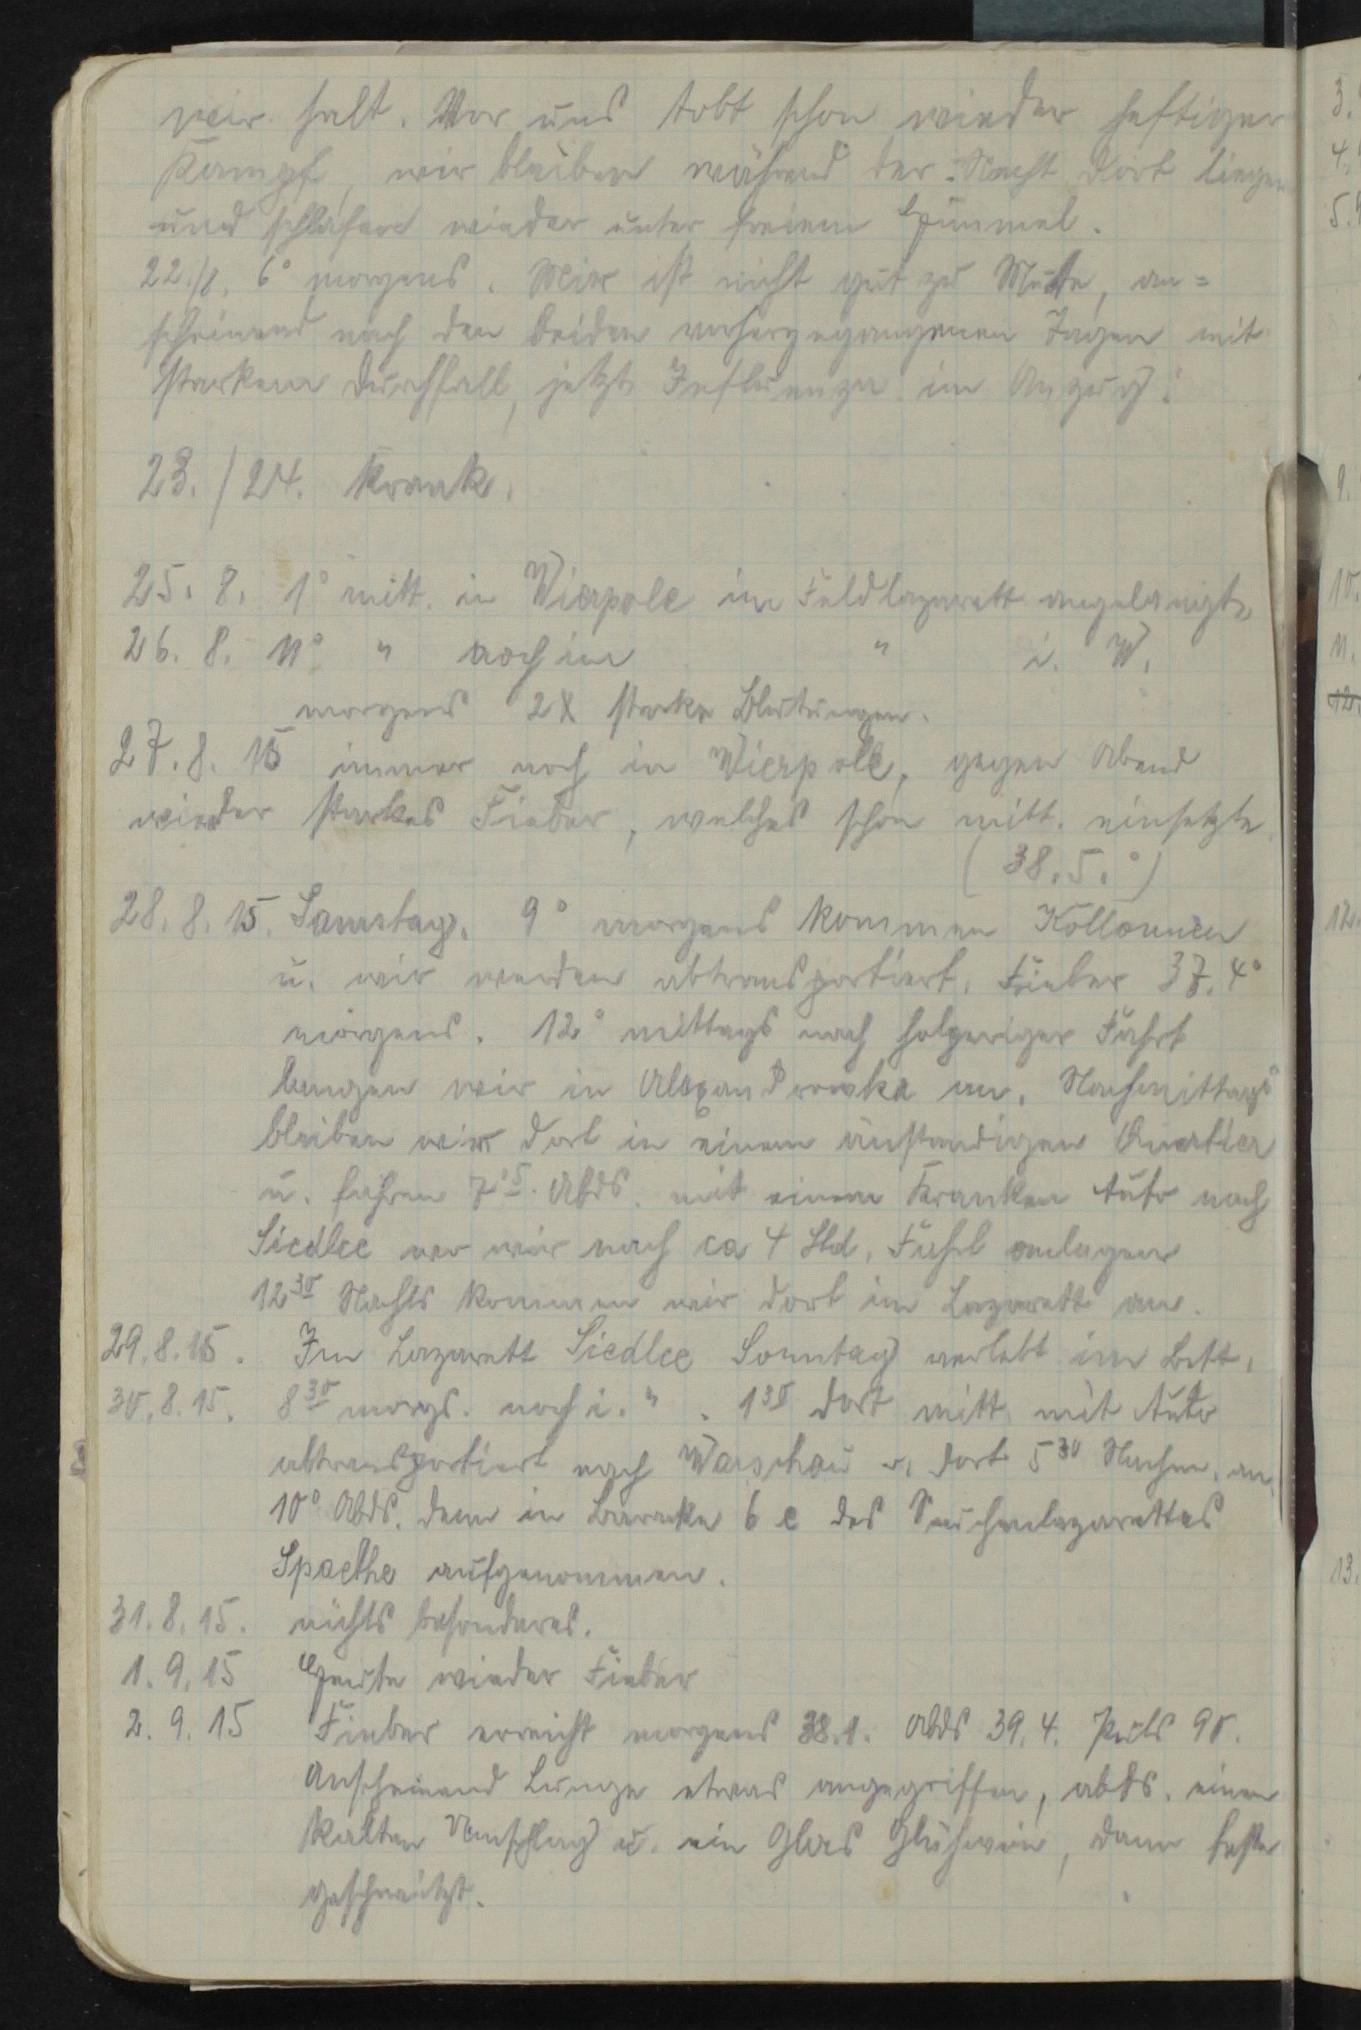 wir halt. Vor uns tobt schon wieder heftiger
Kampf, wir bleiben während der Nacht dort liegen
und schlafen wieder unter freiem Himmel.
22./8. 6° morgens. Mir ist nicht gut zu Mute, an=
scheinend nach den beiden vorhergegangenen Tagen mit
starkem Durchfall, jetzt Influenza im Anzug!
23./24. Krank.
25. 8. 1° mitt. in Wierpole im Feldlazarett angelangt.
26. 8. 11° " noch im " i. W.
morgens 2 X starke Blutungen.
27. 8. 15 immer noch in Wierpole, gegen Abend
wieder starkes Fieber, welches schon mitt. einsetzte
(38.5.°)
28. 8. 15. Samstag. 9° morgens kommen Kollonnen
u. wir werden abtransportiert. Fieber 37.4°
morgens. 12° mittags nach holperiger Fahrt
langen wir in Alexandrowka an. Nachmittags
bleiben wir dort in einem anständigen Quartier
u. fahren Abds. mit einem Kranken Auto nach
Siedlce wo wir nach ca 4 Std. Fahrt anlagen
12³⁰ Nachts kommen wir dort im Lazarett an.
29. 8. 15. Im Lazarett Siedlce Sonntag verlebt im Bett.
30. 8. 15. 8³⁰ morgs. noch i. ". 1³⁰ dort mitt. mit Auto
abtransportiert nach Warschau u. dort 5³⁰ Nachm. an.
10° Abds. dann in Baracke 6 c des Seuchenlazarettes
Spaethe aufgenommen.
31. 8. 15. nichts besonderes.
1. 9. 15 Heute wieder Fieber
2. 9. 15 Fieber erreicht morgens 38.1. Abds 39.4. Puls 90.
Anscheinend Lunge etwas angegriffen, abds. einen
kalten Umschlag u. ein Glas Glühwein, dann feste
geschwitzt.
3.
4.
5.
9.
10.
11.
12.
12.
13.